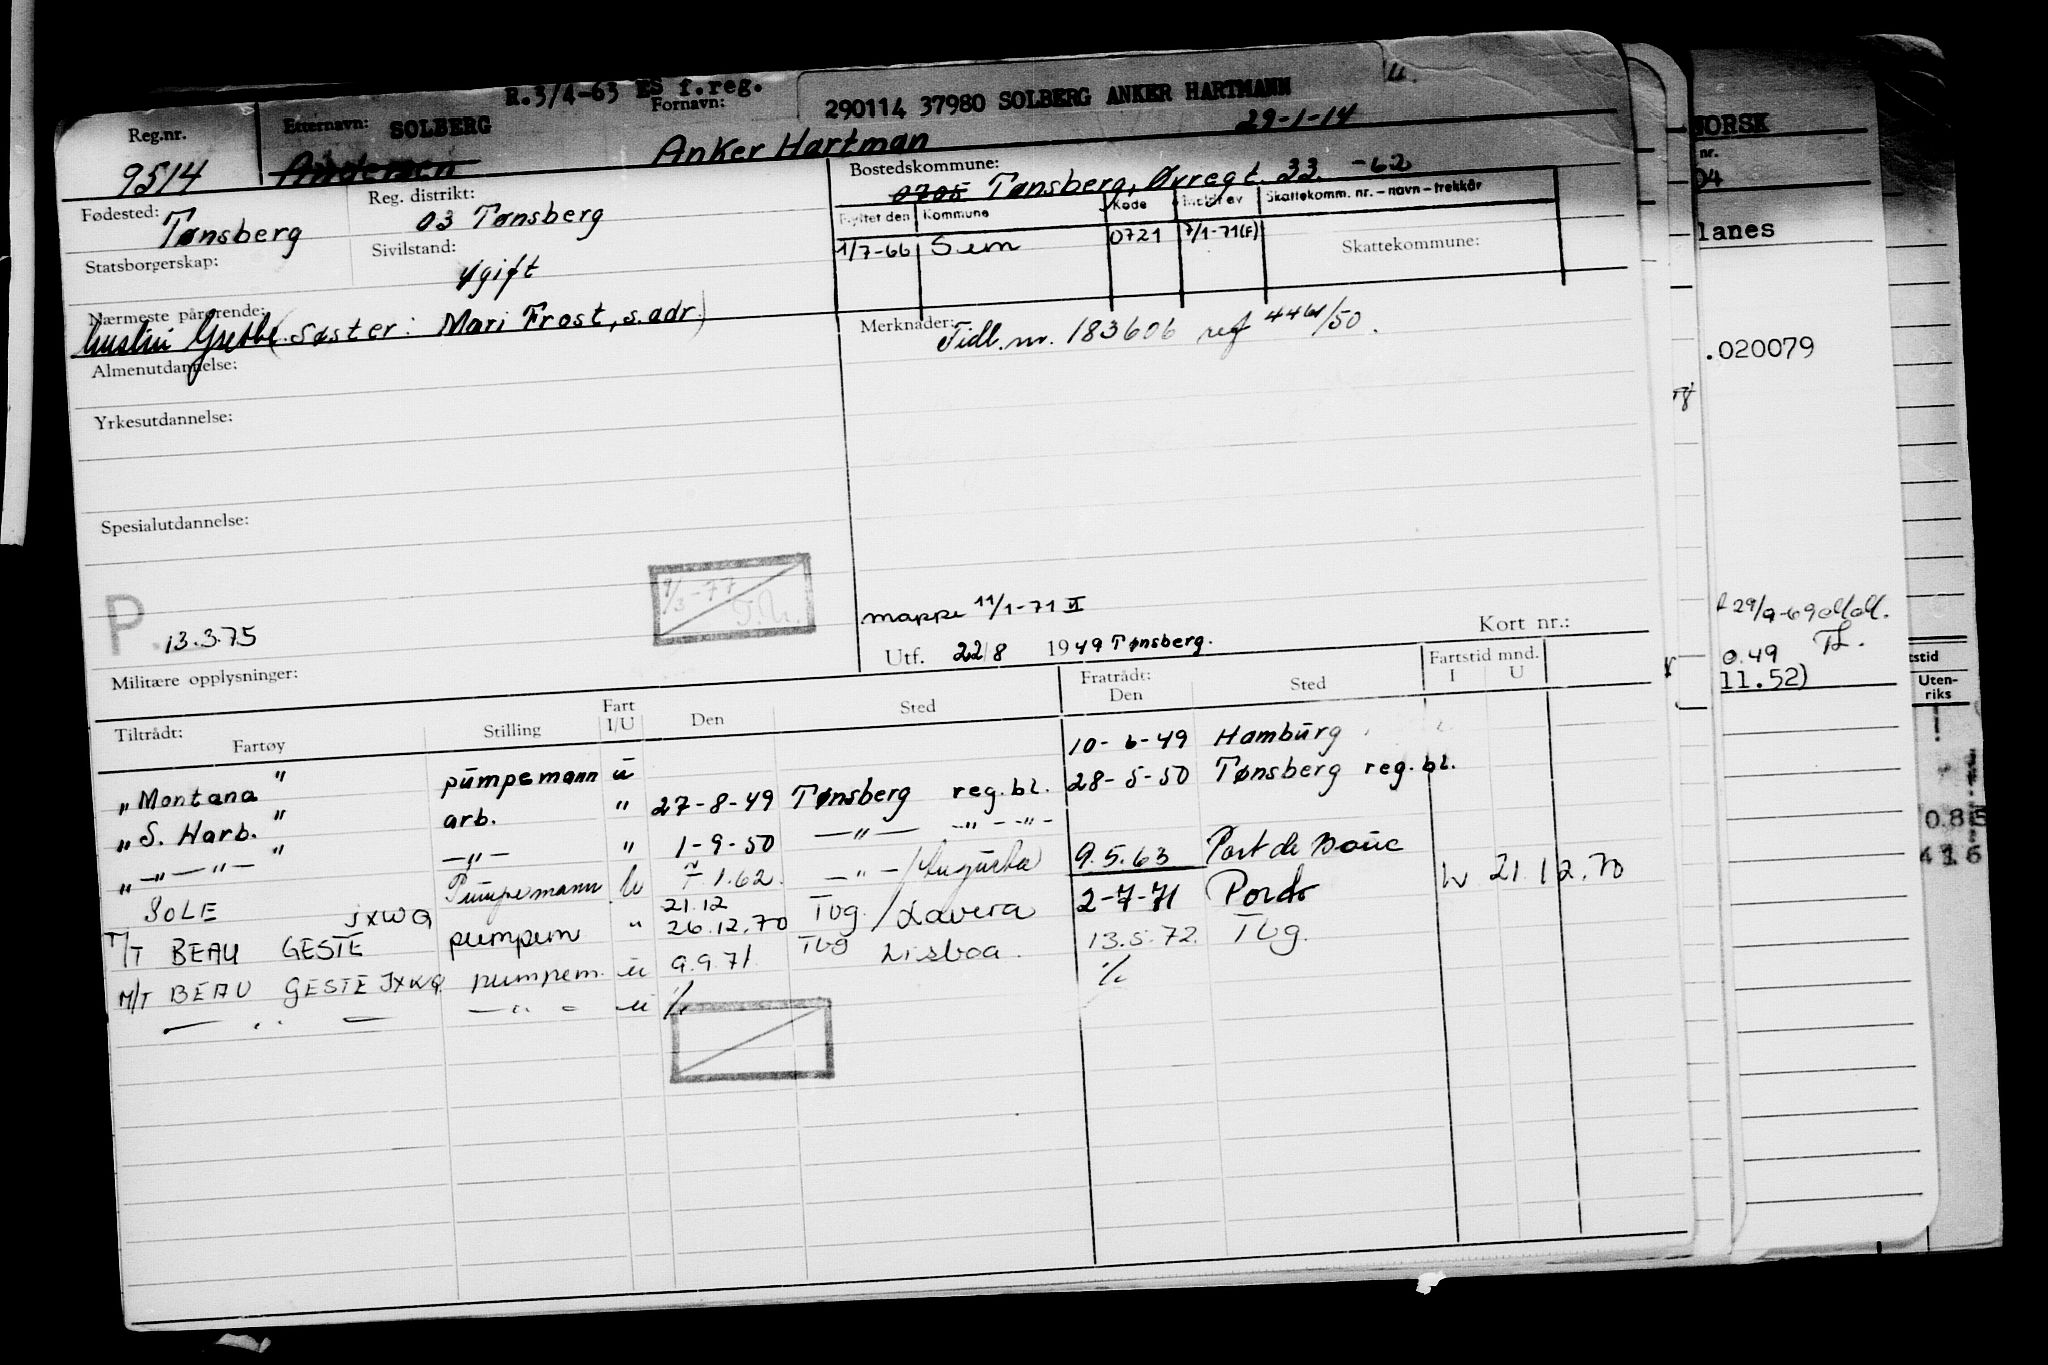 R.3/4-63 ES f.reg.
290114 37980 SOLBERG ANKER HARTMANN
Reg.nr. Etternavn: SOLBERG Fornavn: 29-1-14
9514 Andersen Anker Hartman
Fødested: Tønsberg Reg. distrikt: 03 Tønsberg
Bostedskommune: 0705 Tønsberg, Øvregt. 33. -62
Flyttet den Kommune Kode Skattekomm. nr. – navn – trekkår
1/7-66 Sem 0721 7/1-71(F) Skattekommune:
Statsborgerskap: Sivilstand: gift
Nærmeste pårørende: Grethe (Søster: Mari Frost, s. adr.)
Merknader: Tidl. nr. 183606 ref 4461/50.
Almenutdannelse:
Yrkesutdannelse:
Spesialutdannelse:
9/3-77
P 13.3.75
mappe 11/1-71 VI
Utf. 22/8 1949 Tønsberg. Kort nr.:
Militære opplysninger:
Tiltrådt: Fartøy Stilling Fart I/U Den Sted Fratrådt: Den Sted Fartstid mnd. I U
"Montana" pumpemann u 10-6-49 Hamburg
"S. Harb." arb. " 27-8-49 Tønsberg reg.bl. 28-5-50 Tønsberg reg.bl.
" —"— " —"— " 1-9-50 —"— —"— "—
SOLE Pumpemann u 7.1.62. —"—/Augusta 9.5.63 Port de Bouc
T/T BEAU GESTE JXWQ pumpem " 21.12 26.12.70 Tbg./Lavera 2-7-71 21.12.70
M/T BEAU GESTE JXWQ pumpem. u 9.9.71. Tbg Lisboa. 13.5.72. Tbg.
— " — — " — u %. %
NORSK
nr.
04
lanes
.020079
29/9-69
0.49
11.52)
tstid
Uten-
riks
0.85
416